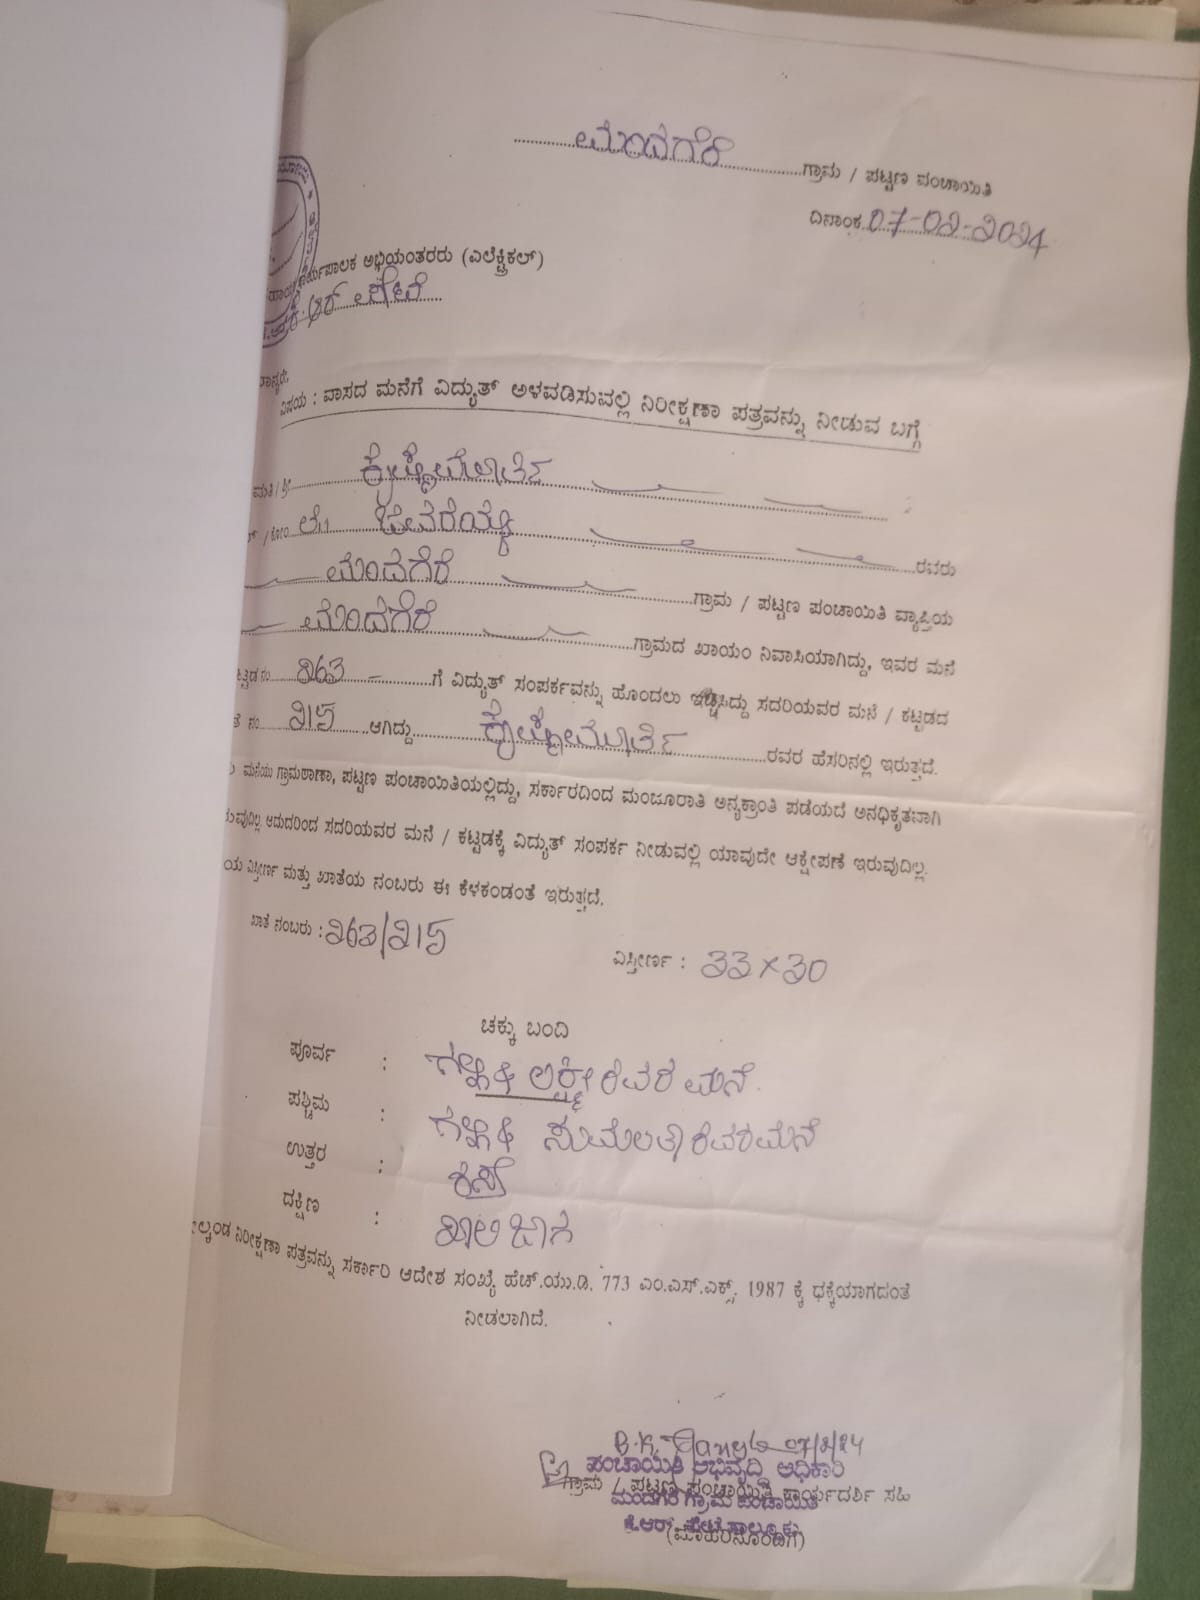 ಮಂದಗೆರೆ ಗ್ರಾಮ / ಪಟ್ಟಣ ಪಂಚಾಯಿತಿ
ದಿನಾಂಕ 07-02-2024
ಕಾರ್ಯಪಾಲಕ ಅಭಿಯಂತರರು (ಎಲೆಕ್ಟ್ರಿಕಲ್)
ಕೆ.ಆರ್ ಪೇಟೆ
ಮಾನ್ಯರೇ,
ವಿಷಯ : ವಾಸದ ಮನೆಗೆ ವಿದ್ಯುತ್ ಅಳವಡಿಸುವಲ್ಲಿ ನಿರೀಕ್ಷಣಾ ಪತ್ರವನ್ನು ನೀಡುವ ಬಗ್ಗೆ
ಮತಿ / ಶ್ರೀ ಕೃಷ್ಣಮೂರ್ತಿ
/ ಕೋಂ ಲೇ॥ ಜವರಯ್ಯ ರವರು
ಮಂದಗೆರೆ ಗ್ರಾಮ / ಪಟ್ಟಣ ಪಂಚಾಯಿತಿ ವ್ಯಾಪ್ತಿಯ
ಮಂದಗೆರೆ ಗ್ರಾಮದ ಖಾಯಂ ನಿವಾಸಿಯಾಗಿದ್ದು, ಇವರ ಮನೆ
ಟ್ಟಡ ನಂ 263 ಗೆ ವಿದ್ಯುತ್ ಸಂಪರ್ಕವನ್ನು ಹೊಂದಲು ಇಚ್ಚಿಸಿದ್ದು ಸದರಿಯವರ ಮನೆ / ಕಟ್ಟಡದ
ತೆ ನಂ 215 ಆಗಿದ್ದು ಕೃಷ್ಣಮೂರ್ತಿ ರವರ ಹೆಸರಿನಲ್ಲಿ ಇರುತ್ತದೆ.
ಮನೆಯು ಗ್ರಾಮಠಾಣಾ, ಪಟ್ಟಣ ಪಂಚಾಯಿತಿಯಲ್ಲಿದ್ದು, ಸರ್ಕಾರದಿಂದ ಮಂಜೂರಾತಿ ಅನ್ಯಕ್ರಾಂತಿ ಪಡೆಯದೆ ಅನಧಿಕೃತವಾಗಿ
ರುವುದಿಲ್ಲ ಆದುದರಿಂದ ಸದರಿಯವರ ಮನೆ / ಕಟ್ಟಡಕ್ಕೆ ವಿದ್ಯುತ್ ಸಂಪರ್ಕ ನೀಡುವಲ್ಲಿ ಯಾವುದೇ ಆಕ್ಷೇಪಣೆ ಇರುವುದಿಲ್ಲ.
ಯ ವಿಸ್ತೀರ್ಣ ಮತ್ತು ಖಾತೆಯ ನಂಬರು ಈ ಕೆಳಕಂಡಂತೆ ಇರುತ್ತದೆ.
ಖಾತೆ ನಂಬರು : 263/215
ವಿಸ್ತೀರ್ಣ : 33×30
ಚಕ್ಕು ಬಂದಿ
ಪೂರ್ವ : ಗಲ್ಲಿ & ಲಕ್ಷ್ಮೀ ರವರ ಮನೆ
ಪಶ್ಚಿಮ : ಗಲ್ಲಿ & ಸುಮಲತಾ ರವರ ಮನೆ
ಉತ್ತರ : ರಸ್ತೆ
ದಕ್ಷಿಣ : ಖಾಲಿ ಜಾಗ
ಲ್ಕಂಡ ನಿರೀಕ್ಷಣಾ ಪತ್ರವನ್ನು ಸರ್ಕಾರಿ ಆದೇಶ ಸಂಖ್ಯೆ ಹೆಚ್.ಯು.ಡಿ. 773 ಎಂ.ಎಸ್.ಎಕ್ಸ್. 1987 ಕ್ಕೆ ಧಕ್ಕೆಯಾಗದಂತೆ
ನೀಡಲಾಗಿದೆ.
B.K. 07/2/24
ಪಂಚಾಯಿತಿ ಅಭಿವೃದ್ಧಿ ಅಧಿಕಾರಿ
ಗ್ರಾಮ / ಪಟ್ಟಣ ಪಂಚಾಯಿತಿ ಕಾರ್ಯದರ್ಶಿ ಸಹಿ
ಮಂದಗೆರೆ ಗ್ರಾಮ ಪಂಚಾಯಿತಿ
ಕೆ.ಆರ್. ಪೇಟೆ ತಾಲ್ಲೂಕು
(ಮೊಹರಿನೊಂದಿಗೆ)